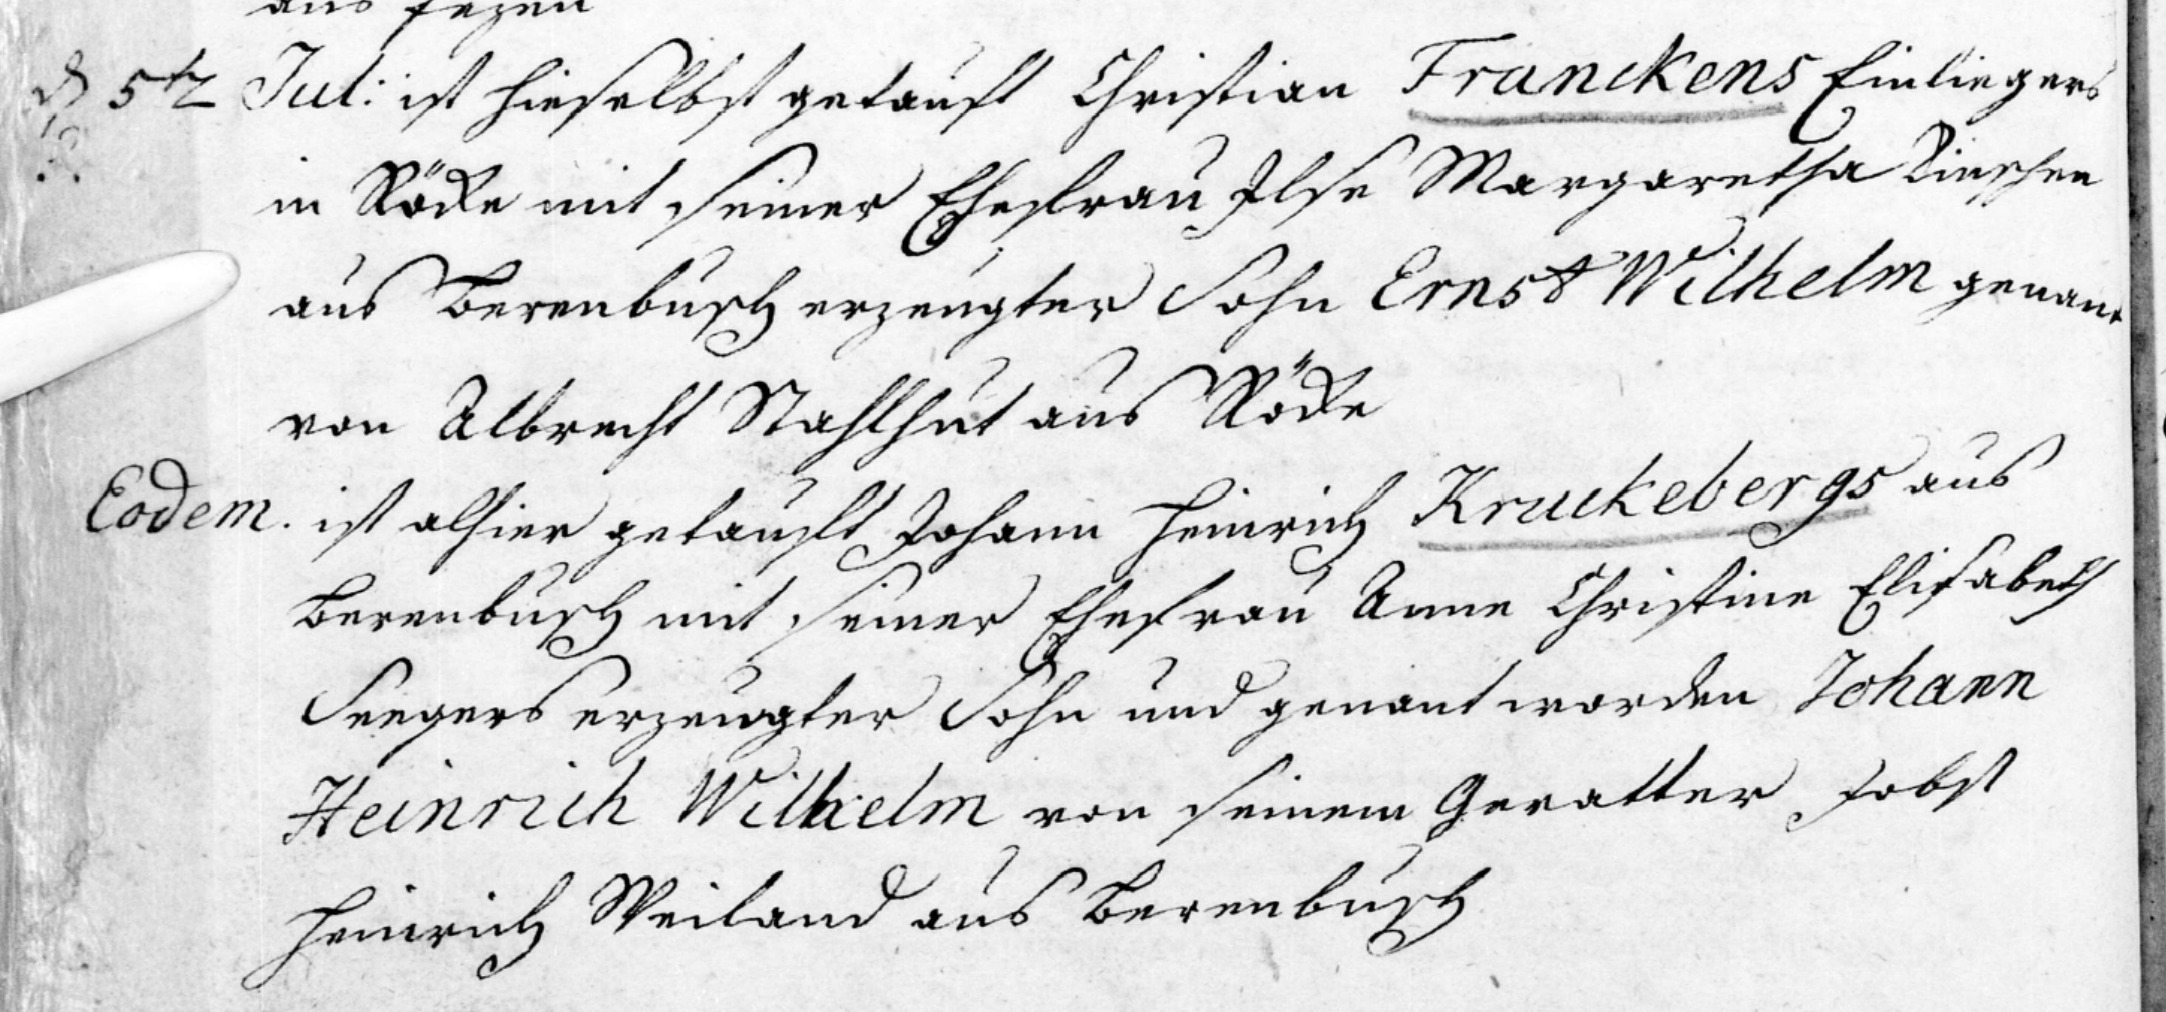 aus Eezen
d 5t Jul: ist hieselbst getauft Christian Franckens Einliegers
in Röcke mit seiner Ehefrau Ilse Margaretha
aus Berenbusch erzeugter Sohn Ernst Wilhelm genant
von Albrecht Stahlhut aus Röcke
Eodem. ist alhier getauft Johann Heinrich Kruckebergs aus
Berenbusch mit seiner Ehefrau Anne Christine Elisabeth
Seegers erzeugter Sohn und genant worden Johann
Heinrich Wilhelm von seinem Gevatter Jobst
Heinrich Weiland aus Berenbusch